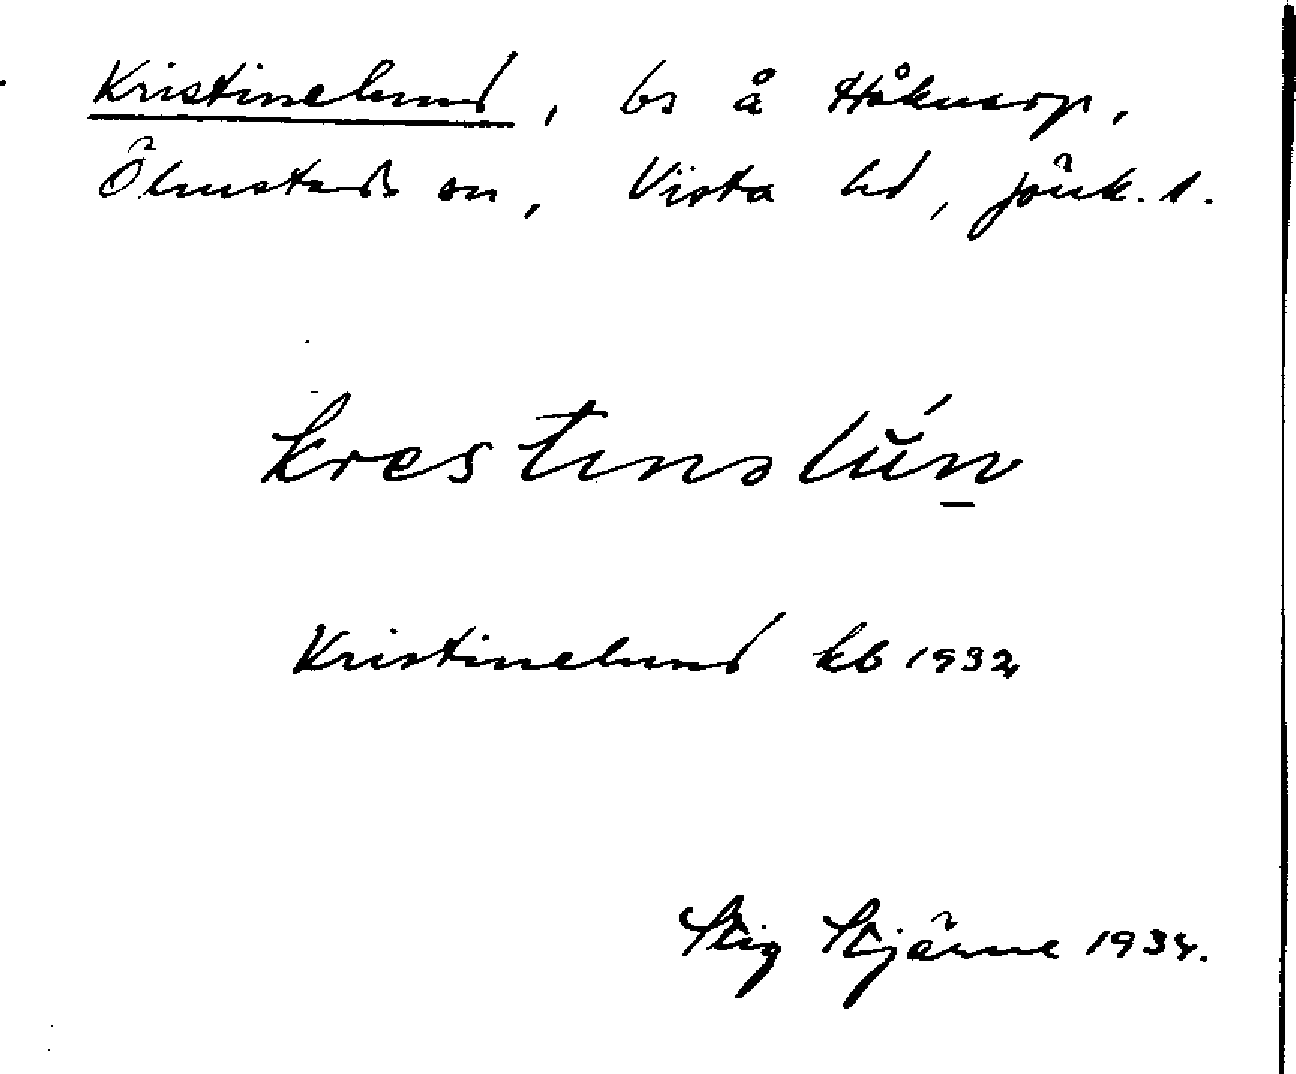 Kristinelund, bs å Håknarp,
Ölmstads sn, Vista hd, Jönk. l.
krestinəlún
Kristinelund kb 1932
Stig Stjärne 1934.